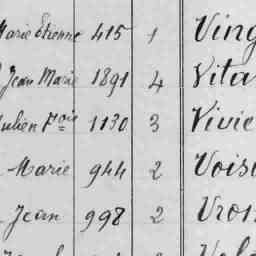 Marie Etienne 415 1 Ving
Jean Marie 1891 4 Vita
Julien Fois 1130 3 Vivie
Marie 944 2 Vois
Jean 998 2 Vron